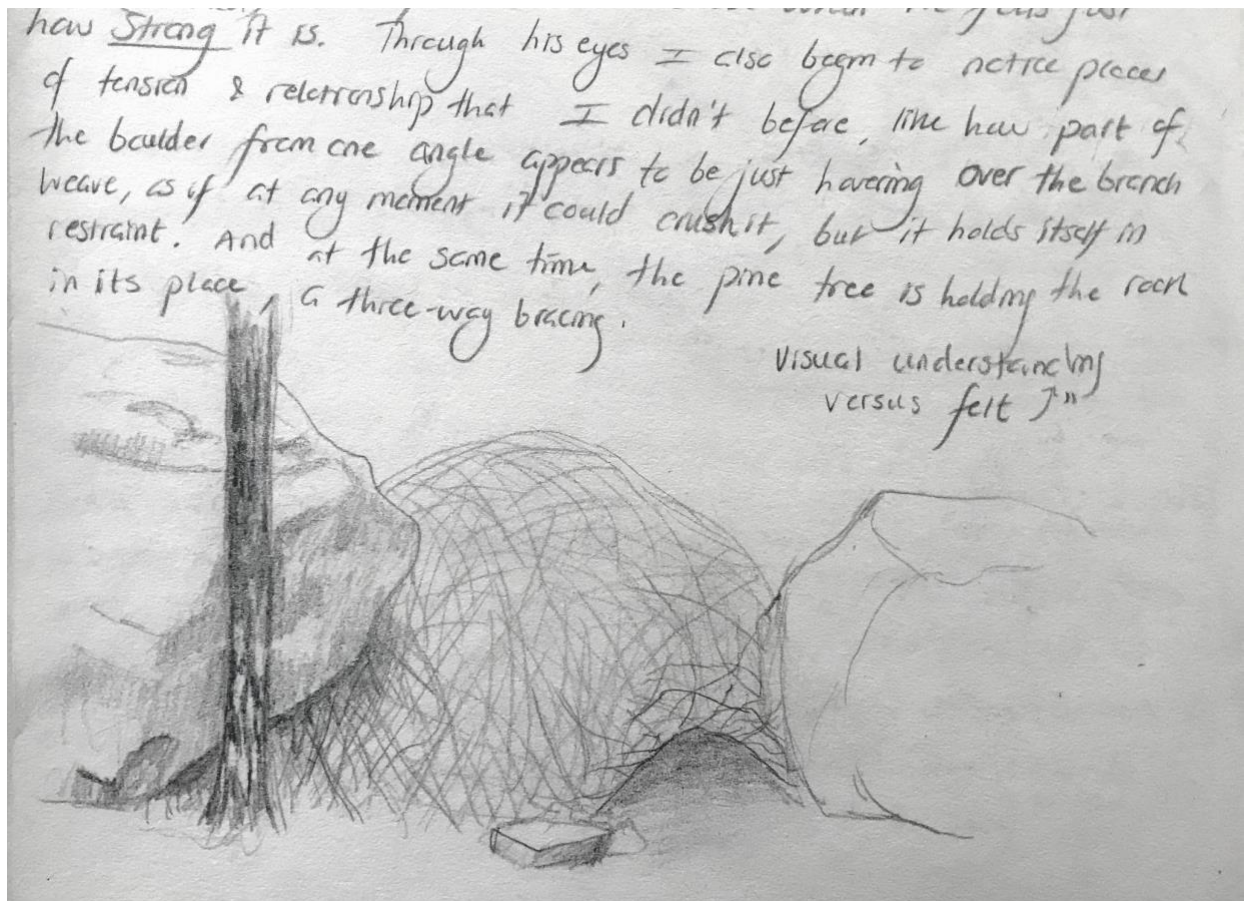 how Strong it is. Through his eyes I also begin to notice places
of tension & relationship that I didn't before, like how part of
the boulder from one angle appears to be just hovering over the branch
weave, as if at any moment it could crush it, but it holds itself in
restraint. And at the same time, the pine tree is holding the rock
in its place, a three-way bracing.
visual understanding
versus felt